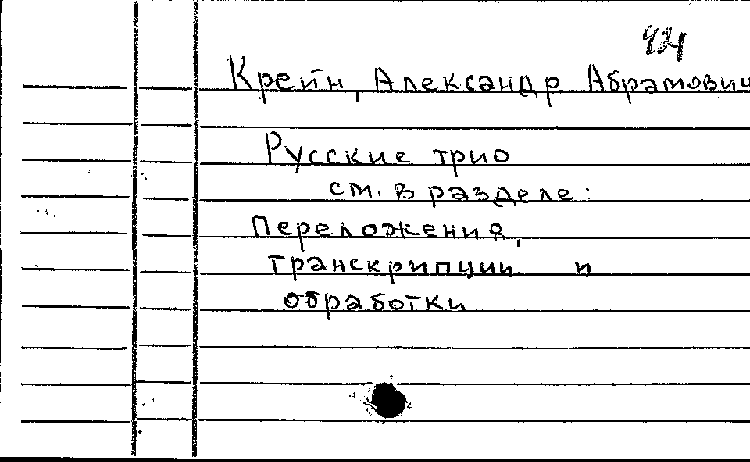 924
Крейн, Александр Абрамович
Русские трио
см. в разделе:
Переложения,
транскрипции и
обработки